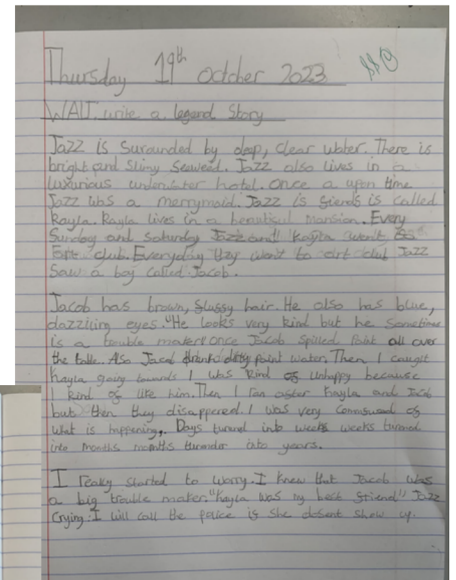 Thursday 19th octoher 2023
WALT write a legend Story
Jazz is surounded by deep, clear water. There is
bright and slimy seaweed. Jazz also lives in a
luxurious underwater hotel. once a upon time
Jazz was a merrymaid. Jazz is friends is called
Kayla. Kayla lives in a beautiful mansion. Every
Sunday and saturday Jazz and Kayla went to
club. Everyday they want to art club Jazz
saw a boy called Jacob.
Jacob has brown, flussy hair. He also has blue,
dazzling eyes. "He looks very kind but he sometime
is a trouble maker" once Jacob spilled Paint all over
the table. Also Jacod drank dirty paint water. Then I caught
Kayla going towards I was kind of unhappy because
I kind of like him. Then I ran after Kayla and Jacob
but then they disappeared. I was very of
what is happening. Days turned into weeks weeks turned
into months months turnder into years.
I realy started to worry. I knew that Jacob was
a big trouble maker. "Kayla was my best friend" Jazz
crying. I will call the police is she dosent show up.